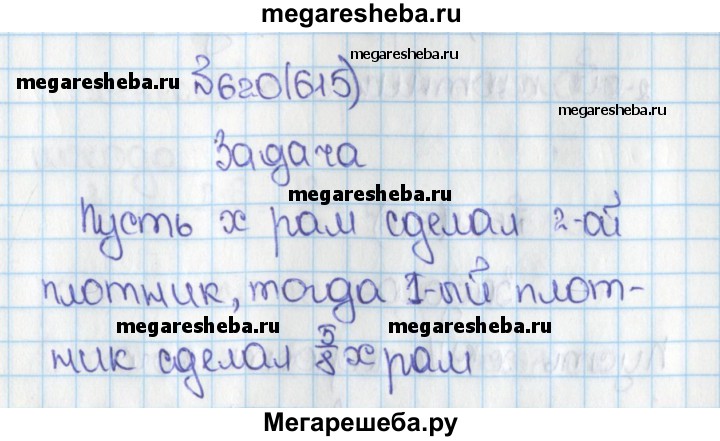 megaresheba.ru
megaresheba.ru
megaresheba.ru
№620(615)
megaresheba.ru
Задача
megaresheba.ru
Пусть x рам сделал 2-ой
плотник, тогда 1-ый плот-
megaresheba.ru
megaresheba.ru
ник сделал 5/8 x рам
Мегарешеба.ру